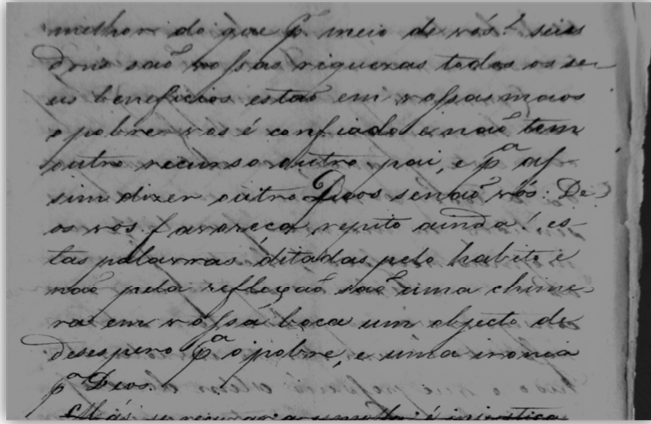 melhor do que pr. meio de vós! seus
dons saõ vossas riquezas todos os se-
us beneficios estaõ em vossas maos
o pobre vos é confiado e naõ tem
outro recurso outro pai, e pa. as-
sim dizer outro Deos senaõ vós: De-
os vos favoreça repito ainda! es-
tas palavras ditadas pelo habito e
naõ pela reflexaõ saõ uma chime-
ra em vossa boca um objecto de
desespero pa. o pobre, e uma ironia
pa. Deos.
Mas, se recusar a esmolla é injustiça